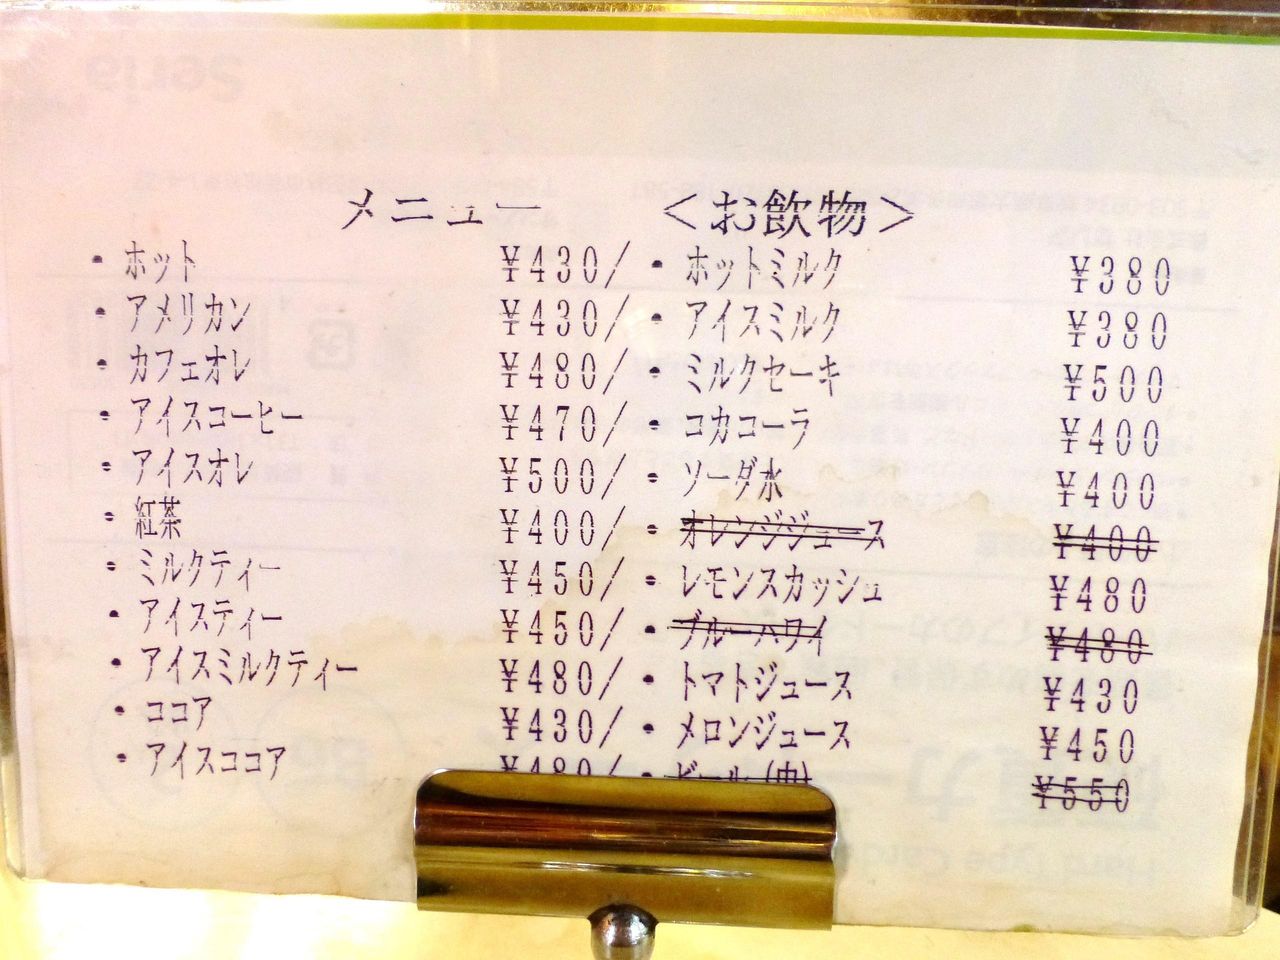 メニュー <お飲物>
・ホット ¥430/・ホットミルク ¥380
・アメリカン ¥430/・アイスミルク ¥380
・カフェオレ ¥480/・ミルクセーキ ¥500
・アイスコーヒー ¥470/・コカコーラ ¥400
・アイスオレ ¥500/・ソーダ水 ¥400
・紅茶 ¥400/・オレンジジュース ¥400
・ミルクティー ¥450/・レモンスカッシュ ¥480
・アイスティー ¥450/・ブルーハワイ ¥480
・アイスミルクティー ¥480/・トマトジュース ¥430
・ココア ¥430/・メロンジュース ¥450
・アイスココア ¥480/・ビール(中) ¥550
Seria